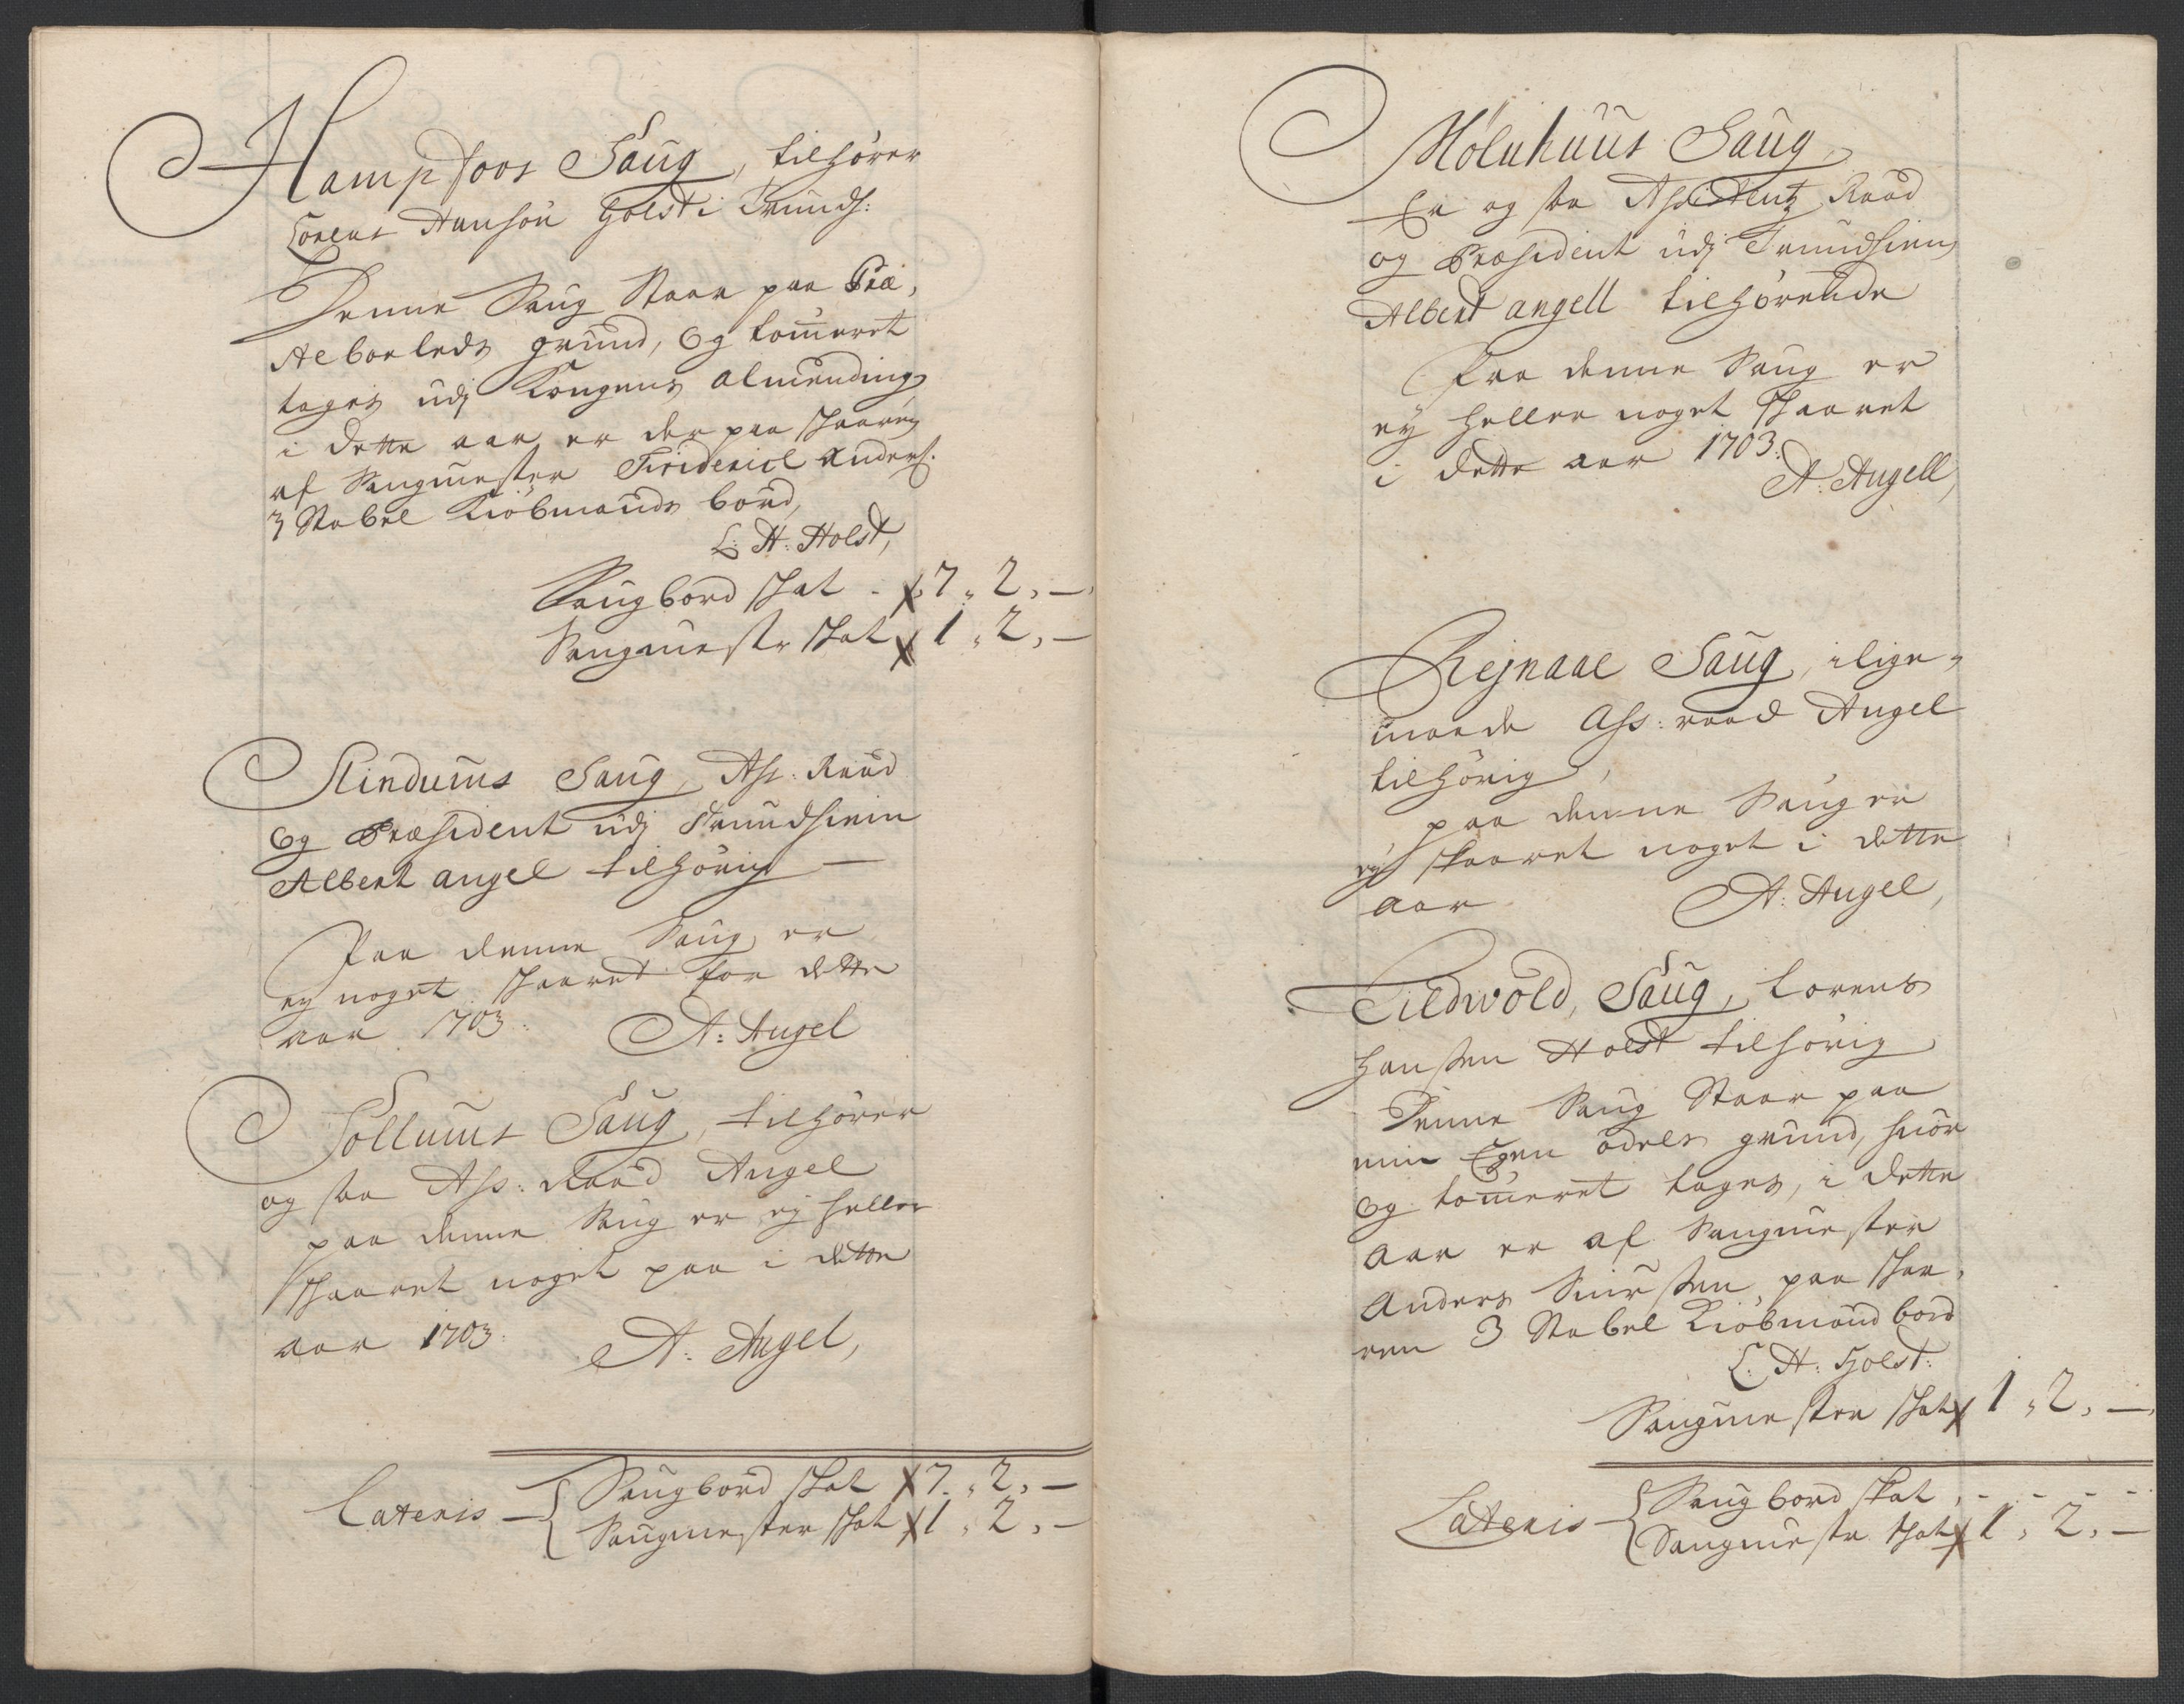 Hampfoos Saug, tilhører
Lorens Hansøn Holst i Trundh:
Denne Saug Staar paa Præ,
Aleboeleds grund, Og tømeret
tages udj Kongens almending,
i dette aar er der paa skaaren
af Saugmester Friderick Anders:
3 Stabel Kiøbmands bord,
L: H: Holst,
Saugbord skat - 7 " 2, —
Saugmestr skat 1 " 2, —
Klindums Saug, Ass: Raad
Og Præsident udj Trundhiem
Albert angel tilhörig —
Paa denne Saug er
ey noget skaaret for dette
aar 1703: A: Angel
Sollums Saug, tilhører
og saa Ass: Raad Angel
paa denne Saug er ej heller
skaaret noget paa i dette
aar 1703: A: Angel,
Lateris — Saugbord skat 7 " 2, —
Saugmester skat 1 " 2, —
Mølnhuus Saug,
Er og saa Assistentz Raad
og Præsident udj Trundhiem
Albert angell tilhørende
Paa denne Saug er
ey heller noget skaaret
i dette aar 1703: A: Angell,
Rejnaae Saug, i lige,
maade Ass: raad Angel
tilhörig,
paa denne Saug er
ej skaaret noget i dette
aar A: Angel,
Tildwold, Saug, Lorens
Hanssen Holst tilhörig
Denne Saug Staar paa
min Egen odels grund, huor
Og tømeret tages, i dette
aar er af Saugmester
Anders Siurssen, paa skaa,
ren 3 Stabel Kiøbmand bord
L: H: Holst:
Saugmester skat 1 " 2, —
Lateris — Saugbord skat, - - - -
Saugmestr skat 1 " 2, —